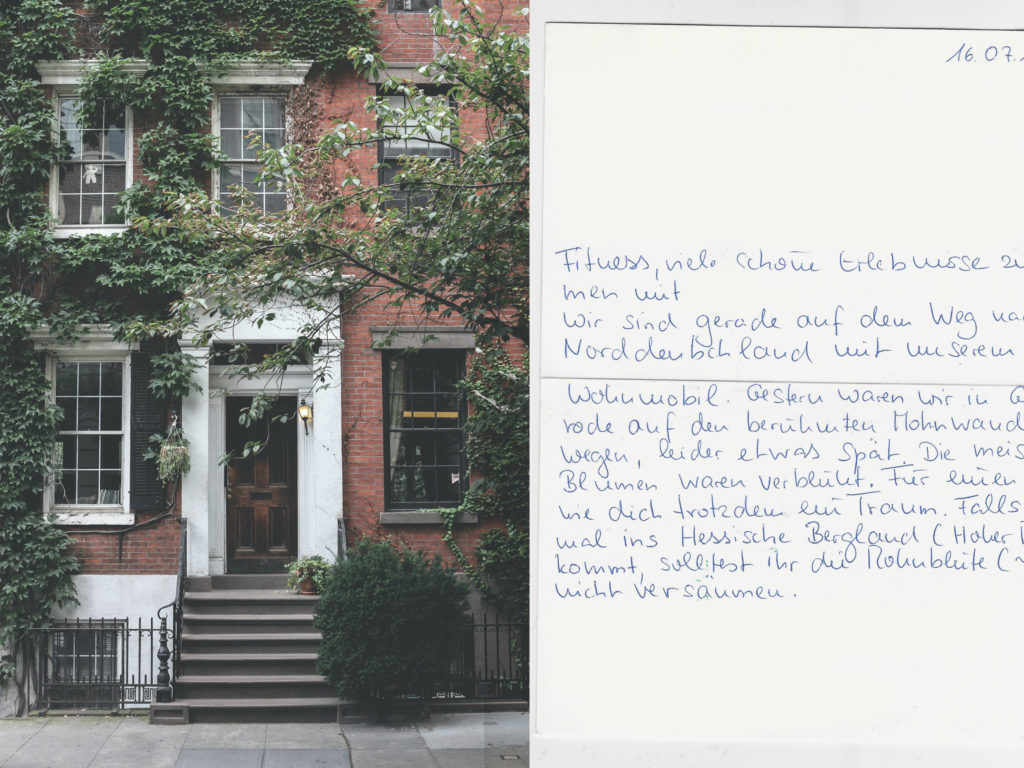 16.07.
Fitness, viele schöne Erlebnisse zu
men mit
Wir sind gerade auf dem Weg nach
Norddeutschland mit unserem
Wohnmobil. Gestern waren wir in
rode auf den berühmten Mohnwand
wegen, leider etwas spät. Die meis
Blumen waren verblüht. Für einen
wie dich trotzdem ein Traum. Falls
mal ins Hessische Bergland (Hoher
kommt, solltest ihr die Mohnblüte (
nicht versäumen.